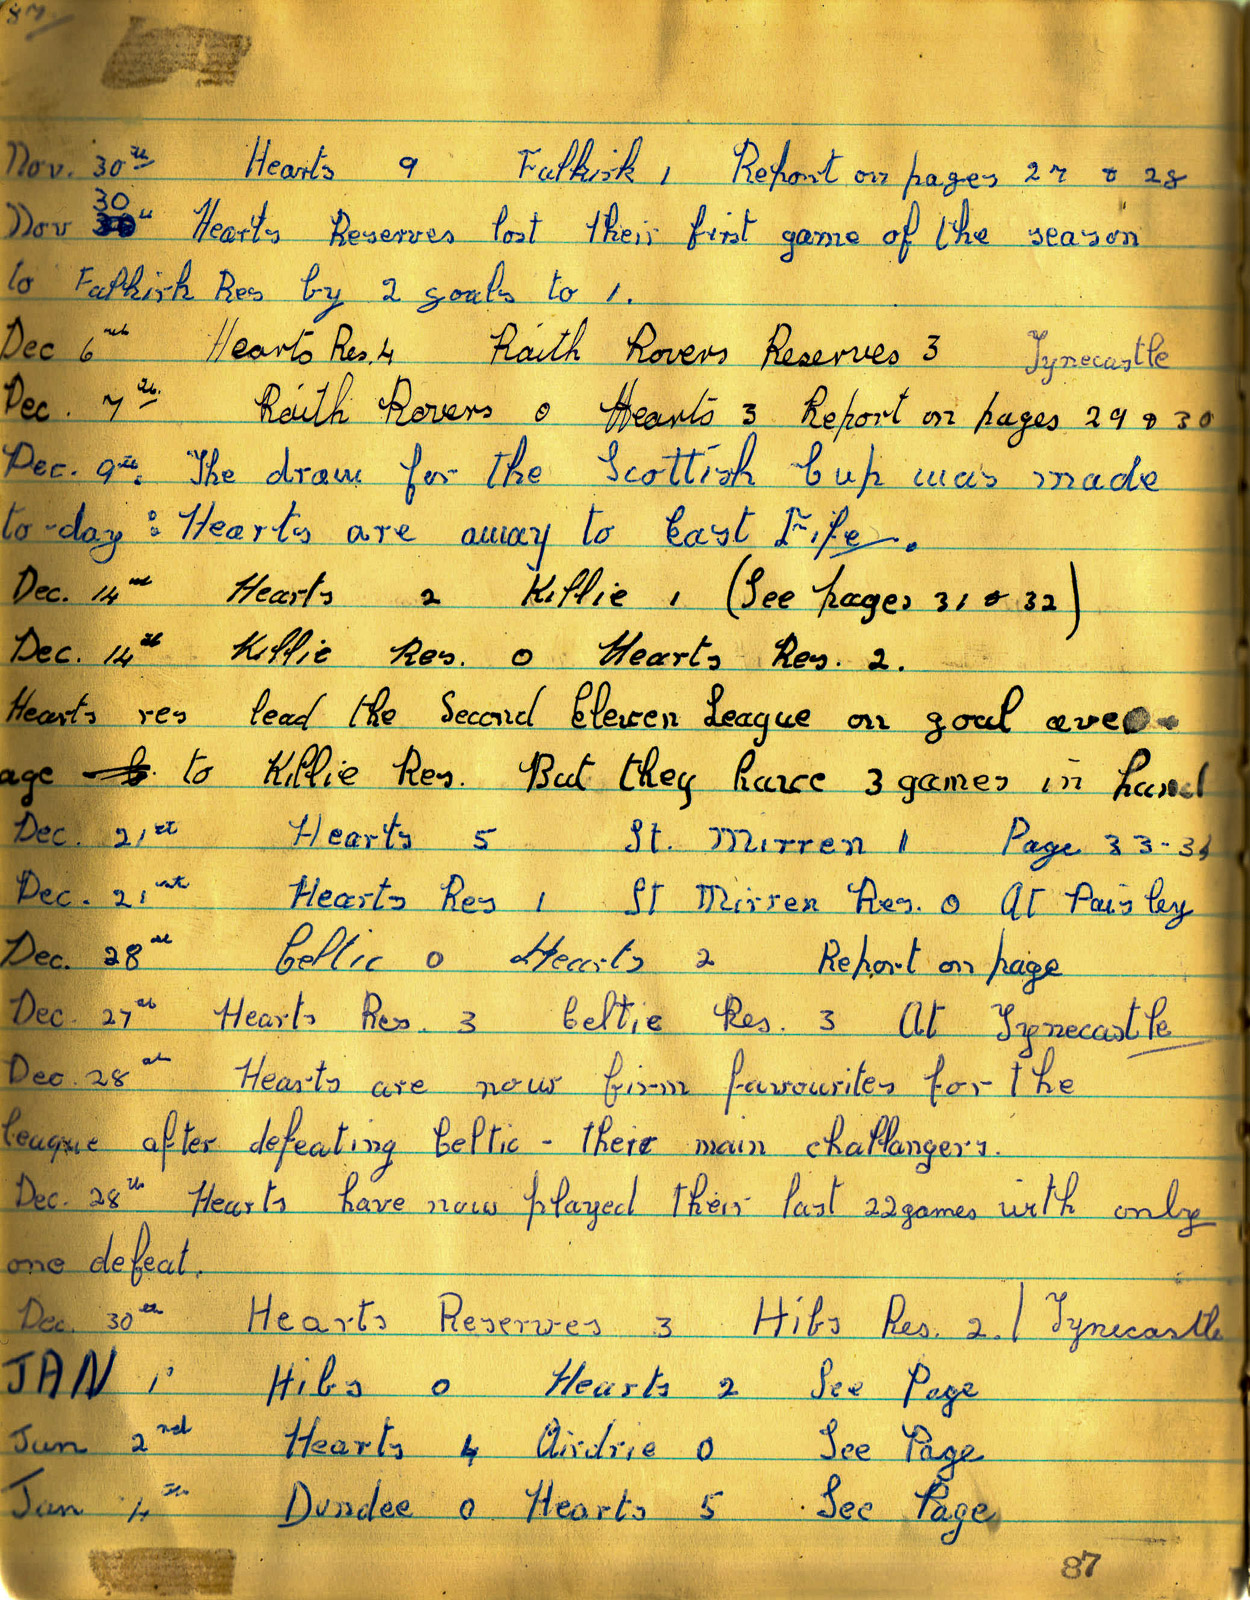 87
Nov. 30th Hearts 9 Falkirk 1 Report on pages 27 & 28
30
Nov Hearts Reserves lost their first game of the season
to Falkirk Res by 2 goals to 1.
Dec 6th Hearts Res. 4 Raith Rovers Reserves 3 Tynecastle
Dec. 7th. Raith Rovers 0 Hearts 3 Report on pages 29 & 30
Dec. 9th: The draw for the Scottish Cup was made
to-day: Hearts are away to East Fife.
Dec. 14th Hearts 2 Killie 1 (See pages 31 & 32)
Dec. 14th Killie Res. 0 Hearts Res. 2.
Hearts res lead the Second Eleven League on goal aver-
age to Killie Res. But they have 3 games in hand
Dec. 21st Hearts 5 St. Mirren 1 Page 33-34
Dec. 21st Hearts Res 1 St Mirren Res. 0 At Paisley
Dec. 28th Celtic 0 Hearts 2 Report on page
Dec. 27th Hearts Res. 3 Celtic Res. 3 At Tynecastle
Dec. 28th Hearts are now firm favourites for the
league after defeating Celtic - their main challangers.
Dec. 28th Hearts have now played their last 22 games with only
one defeat.
Dec. 30th Hearts Reserves 3 Hibs Res. 2. / Tynecastle
JAN 1st Hibs 0 Hearts 2 See Page
Jan 2nd Hearts 4 Airdrie 0 See Page
Jan 4th Dundee 0 Hearts 5 See Page
87